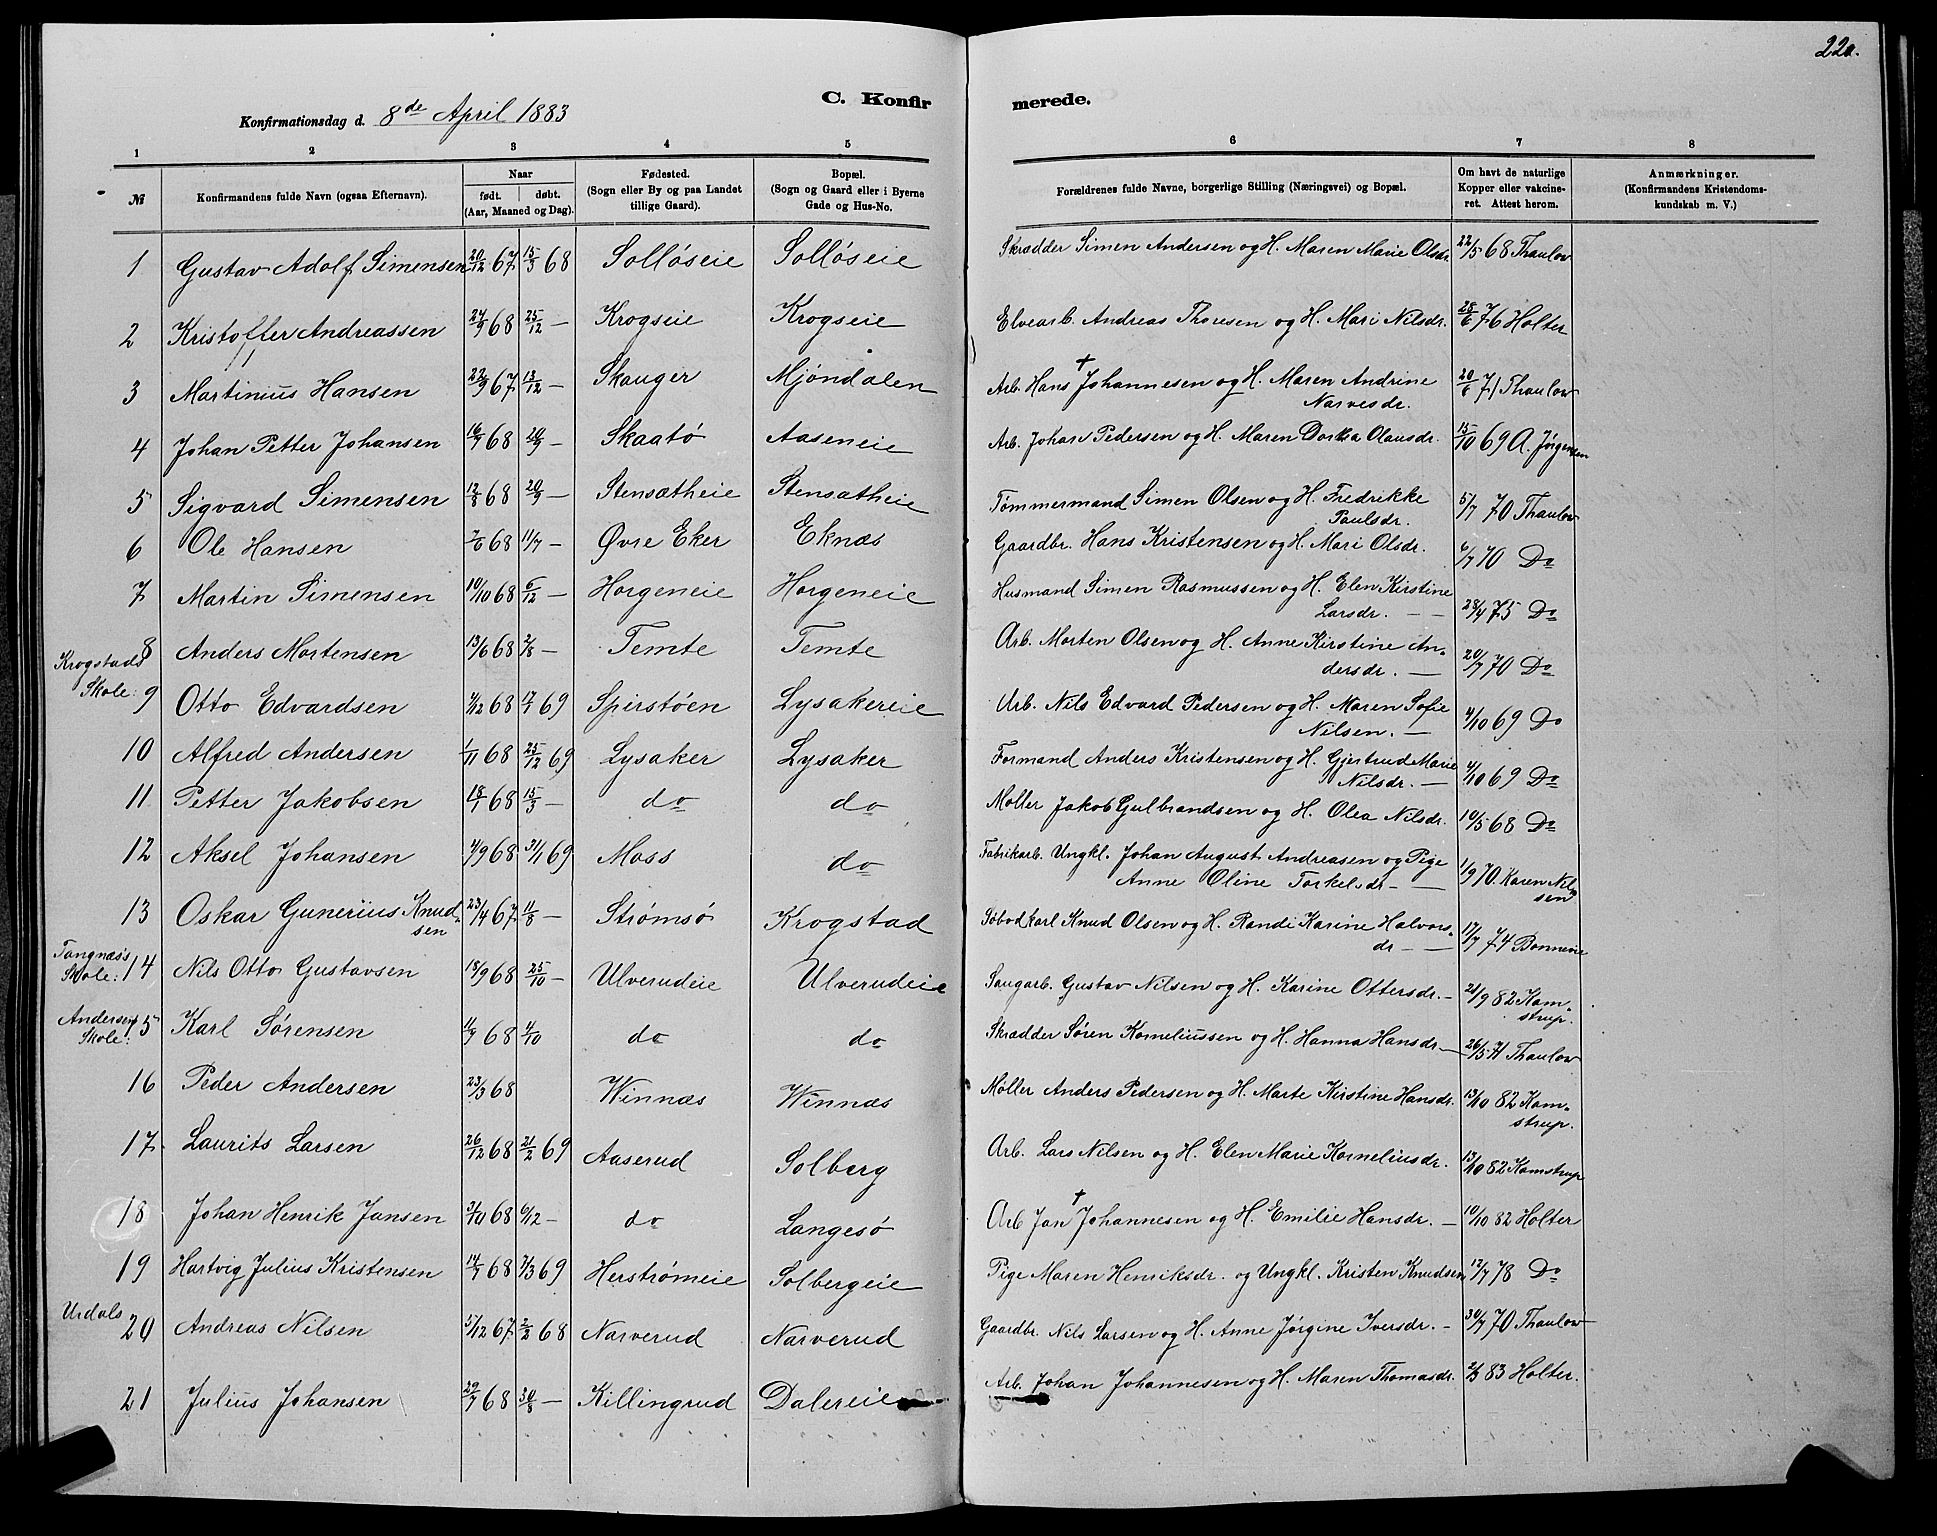 220.
C. Konfirmerede.
Konfirmationsdag d. 8de April 1883
1 2 3 4 5 6 7 8
№ Konfirmandens fulde Navn (ogsaa Efternavn). Naar født. døbt. (Aar, Maaned og Dag). Fødested. (Sogn eller By og paa Landet tillige Gaard). Bopæl. (Sogn og Gaard eller i Byerne Gade og Hus-No. Forældrenes fulde Navne, borgerlige Stilling (Næringsvei) og Bopæl. Om havt de naturlige Kopper eller vakcineret. Attest herom. Anmærkninger. (Konfirmandens Kristendomskundskab m. V.)
1 Gustav Adolf Simensen 20/12 67 15/3 68 Sollöseie Sollöseie Skrædder Simen Andersen og H. Maren Marie Olsdr. 22/5 68 Thaulow
2 Kristoffer Andreassen 24/9 68 25/12 — Krogseie Krogseie Elvearb. Andreas Thoresen og H. Mari Nilsdr. 28/6 76 Holter
3 Martinius Hansen 22/9 67 13/12 — Skauger Mjöndalen Arb. Hans † Johannesen og H. Maren Andrine Narvesdr. 20/6 71 Thaulow
4 Johan Petter Johansen 16/7 68 20/9 — Skaatö Aaseneie Arb. Johan Pedersen og H. Maren Dorthea Olausdr. 15/10 69 A. Jörgensen
5 Sigvard Simensen 12/8 68 20/9 — Stensætheie Stensætheie Tömmermand Simen Olsen og H. Fredrikke Paulsdr. 5/7 70 Thaulow
6 Ole Hansen 7/6 68 11/7 — Øvre Eker Eknæs Gaardbr. Hans Kristensen og H. Mari Olsdr. 6/7 70 Do
7 Martin Simensen 10/10 68 6/12 — Horgeneie Horgeneie Husmand Simen Rasmussen og H. Elen Kirstine Larsdr. — — 28/4 75 Do
8 Anders Mortensen 13/6 68 2/8 — Temte Temte Arb. Morten Olsen og H. Anne Kirstine Andersdr. — 20/7 70 Do
Krogstads Skole: 9 Otto Edvardsen 4/12 68 17/1 69 Spirstöen Lysakereie Arb. Nils Edvard Pedersen og H. Maren Sofie Nilsen. — 4/10 69 Do
10 Alfred Andersen 1/11 68 25/12 69 Lysaker Lysaker Formand Anders Kristensen og H. Gjertrud Marie Nilsdr. — 4/10 69 Do
11 Petter Jakobsen 18/1 68 15/3 — do do Möller Jakob Gulbrandsen og H. Olea Nilsdr. 10/5 68 Do
12 Aksel Johansen 4/9 68 31/1 69 Moss do Fabrikarb. Ungkl. Johan August Andreasen og Pige Anne Oline Torkelsdr — — 1/9 70. Karen Nilssen
13 Oskar Gunerius Knudsen 23/4 67 11/8 — Strömsö Krogstad Söbodkarl Knud Olsen og H. Randi Karine Halvorsdr — — 17/7 74 Bonnevie
Tangnæss Skole: 14 Nils Otto Gustavsen 18/9 68 25/10 — Ulverudeie Ulverudeie Saugarb. Gustav Nilsen og H. Karine Ottersdr. — 21/9 82 Kamstrup.
Andersens Skole: 15 Karl Sörensen 11/9 68 4/10 do do Skrædder Sören Korneliussen og H. Hanna Hansdr. — 26/5 71 Thaulow
16 Peder Andersen 23/3 68 Winnæs Winnæs Möller Anders Pedersen og H. Marte Kirstine Hansdr. 13/10 82 Kamstrup.
17 Laurits Larsen 26/12 68 21/2 69 Aaserud Solberg Arb. Lars Nilsen og H. Elen Marie Korneliusdr. 13/10 82 Kamstrup
18 Johan Henrik Jansen 3/11 68 6/12 — do Langesö Arb Jan † Johannesen og H. Emilie Hansdr. — 10/10 82 Holter
19 Hartvig Julius Kristensen 14/7 68 7/3 69 Herströmeie Solbergeie Pige Maren Henriksdr. og Ungkl. Kristen Knudsen 12/7 78 Do
Urdals 20 Andreas Nilsen 5/12 67 2/2 68 Narverud Narverud Gaardbr. Nils Larsen og H. Anne Jörgine Iversdr. — 30/7 70 Thaulow
21 Julius Johansen 29/7 68 30/8 — Killingrud Dalereie Arb. Johan Johannesen og H. Maren Thomasdr. 2/3 83 Holter.